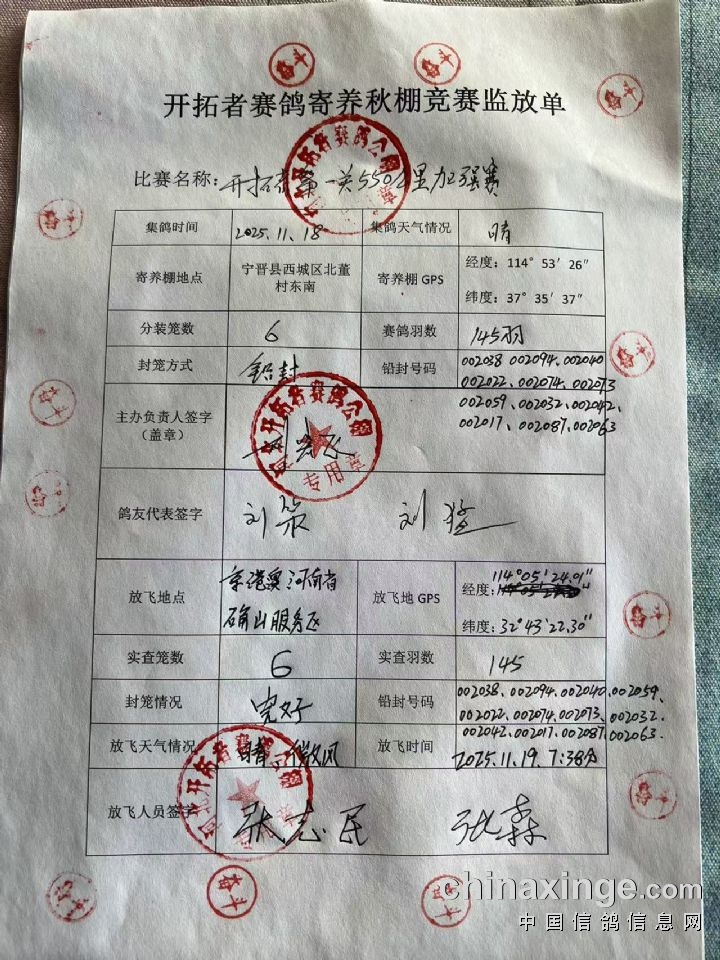 开拓者赛鸽寄养秋棚竞赛监放单
比赛名称：开拓者第一关550公里加强赛
集鸽时间 2025.11.18 集鸽天气情况 晴
寄养棚地点 宁晋县西城区北董村东南 寄养棚 GPS 经度：114° 53′ 26″
纬度：37° 35′ 37″
分装笼数 6 赛鸽羽数 145羽
封笼方式 铅封 铅封号码 002038 002094、002040
002022、002074、002073
002059、002032、002042、
002017、002087、002063
主办负责人签字
（盖章）
专用章
鸽友代表签字 刘策 刘猛
放飞地点 京港澳河南省
确山服务区
放飞地 GPS 经度：114°05′24.01″
纬度：32°43′22.30″
实查笼数 6 实查羽数 145
封笼情况 完好 铅封号码 002038、002094、002040、002059、
002022、002074、002073、002032、
002042、002017、002087、002063、
放飞天气情况 晴 微风 放飞时间 2025.11.19.7:38分
放飞人员签字 张志民 张森
奋斗
chinaxinge.com
中国信鸽信息网